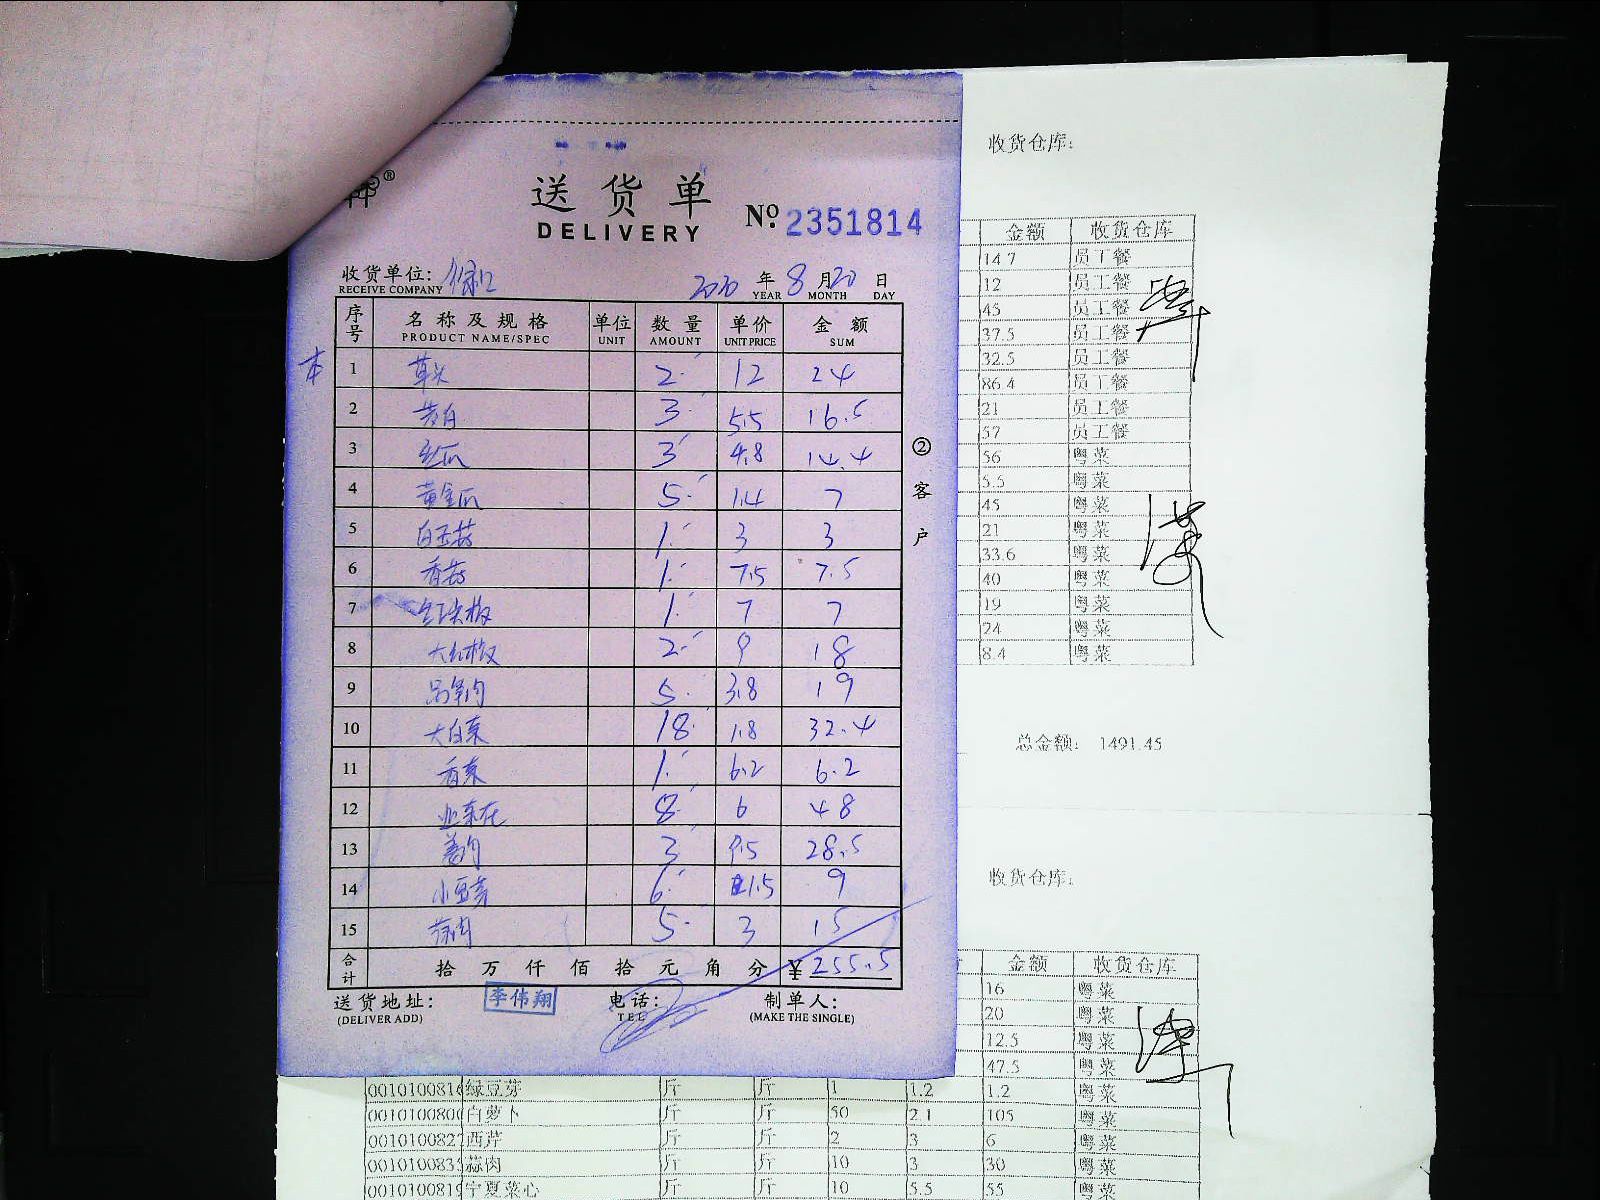 送货单
DELIVERY
№ 2351814
收货单位:
RECEIVE COMPANY
2020 年 8 月 20 日
YEAR MONTH DAY
序号 名称及规格 单位 数量 单价 金额
PRODUCT NAME/SPEC UNIT AMOUNT UNIT PRICE SUM
本
1 草头 2 12 24
2 茭白 3 5.5 16.5
3 丝瓜 3 4.8 14.4
4 黄金瓜 5 1.4 7
5 白玉菇 1 3 3
6 香菇 1 7.5 7.5
7 红尖椒 1 7 7
8 大红椒 2 9 18
9 5 3.8 19
10 大白菜 18 1.8 32.4
11 香菜 1 6.2 6.2
12 8 6 48
13 姜肉 3 9.5 28.5
14 小豆芽 6 1.5 9
15 蒜肉 5 3 15
合计 拾 万 仟 佰 拾 元 角 分 ¥ 255.5
送货地址:
(DELIVER ADD)
李伟翔
电话:
TEL
制单人:
(MAKE THE SINGLE)
② 客户
收货仓库:
金额 收货仓库
14.7 员工餐
12 员工餐
45 员工餐
37.5 员工餐
32.5 员工餐
86.4 员工餐
21 员工餐
57 员工餐
56 粤菜
5.5 粤菜
45 粤菜
21 粤菜
33.6 粤菜
40 粤菜
19 粤菜
24 粤菜
8.4 粤菜
总金额: 1491.45
收货仓库:
金额 收货仓库
16 粤菜
20 粤菜
12.5 粤菜
47.5 粤菜
001010081 绿豆芽 斤 斤 1 1.2 1.2 粤菜
001010080 白萝卜 斤 斤 50 2.1 105 粤菜
001010082 西芹 斤 斤 2 3 6 粤菜
001010083 蒜肉 斤 斤 10 3 30 粤菜
001010081 宁夏菜心 斤 斤 10 5.5 55 粤菜